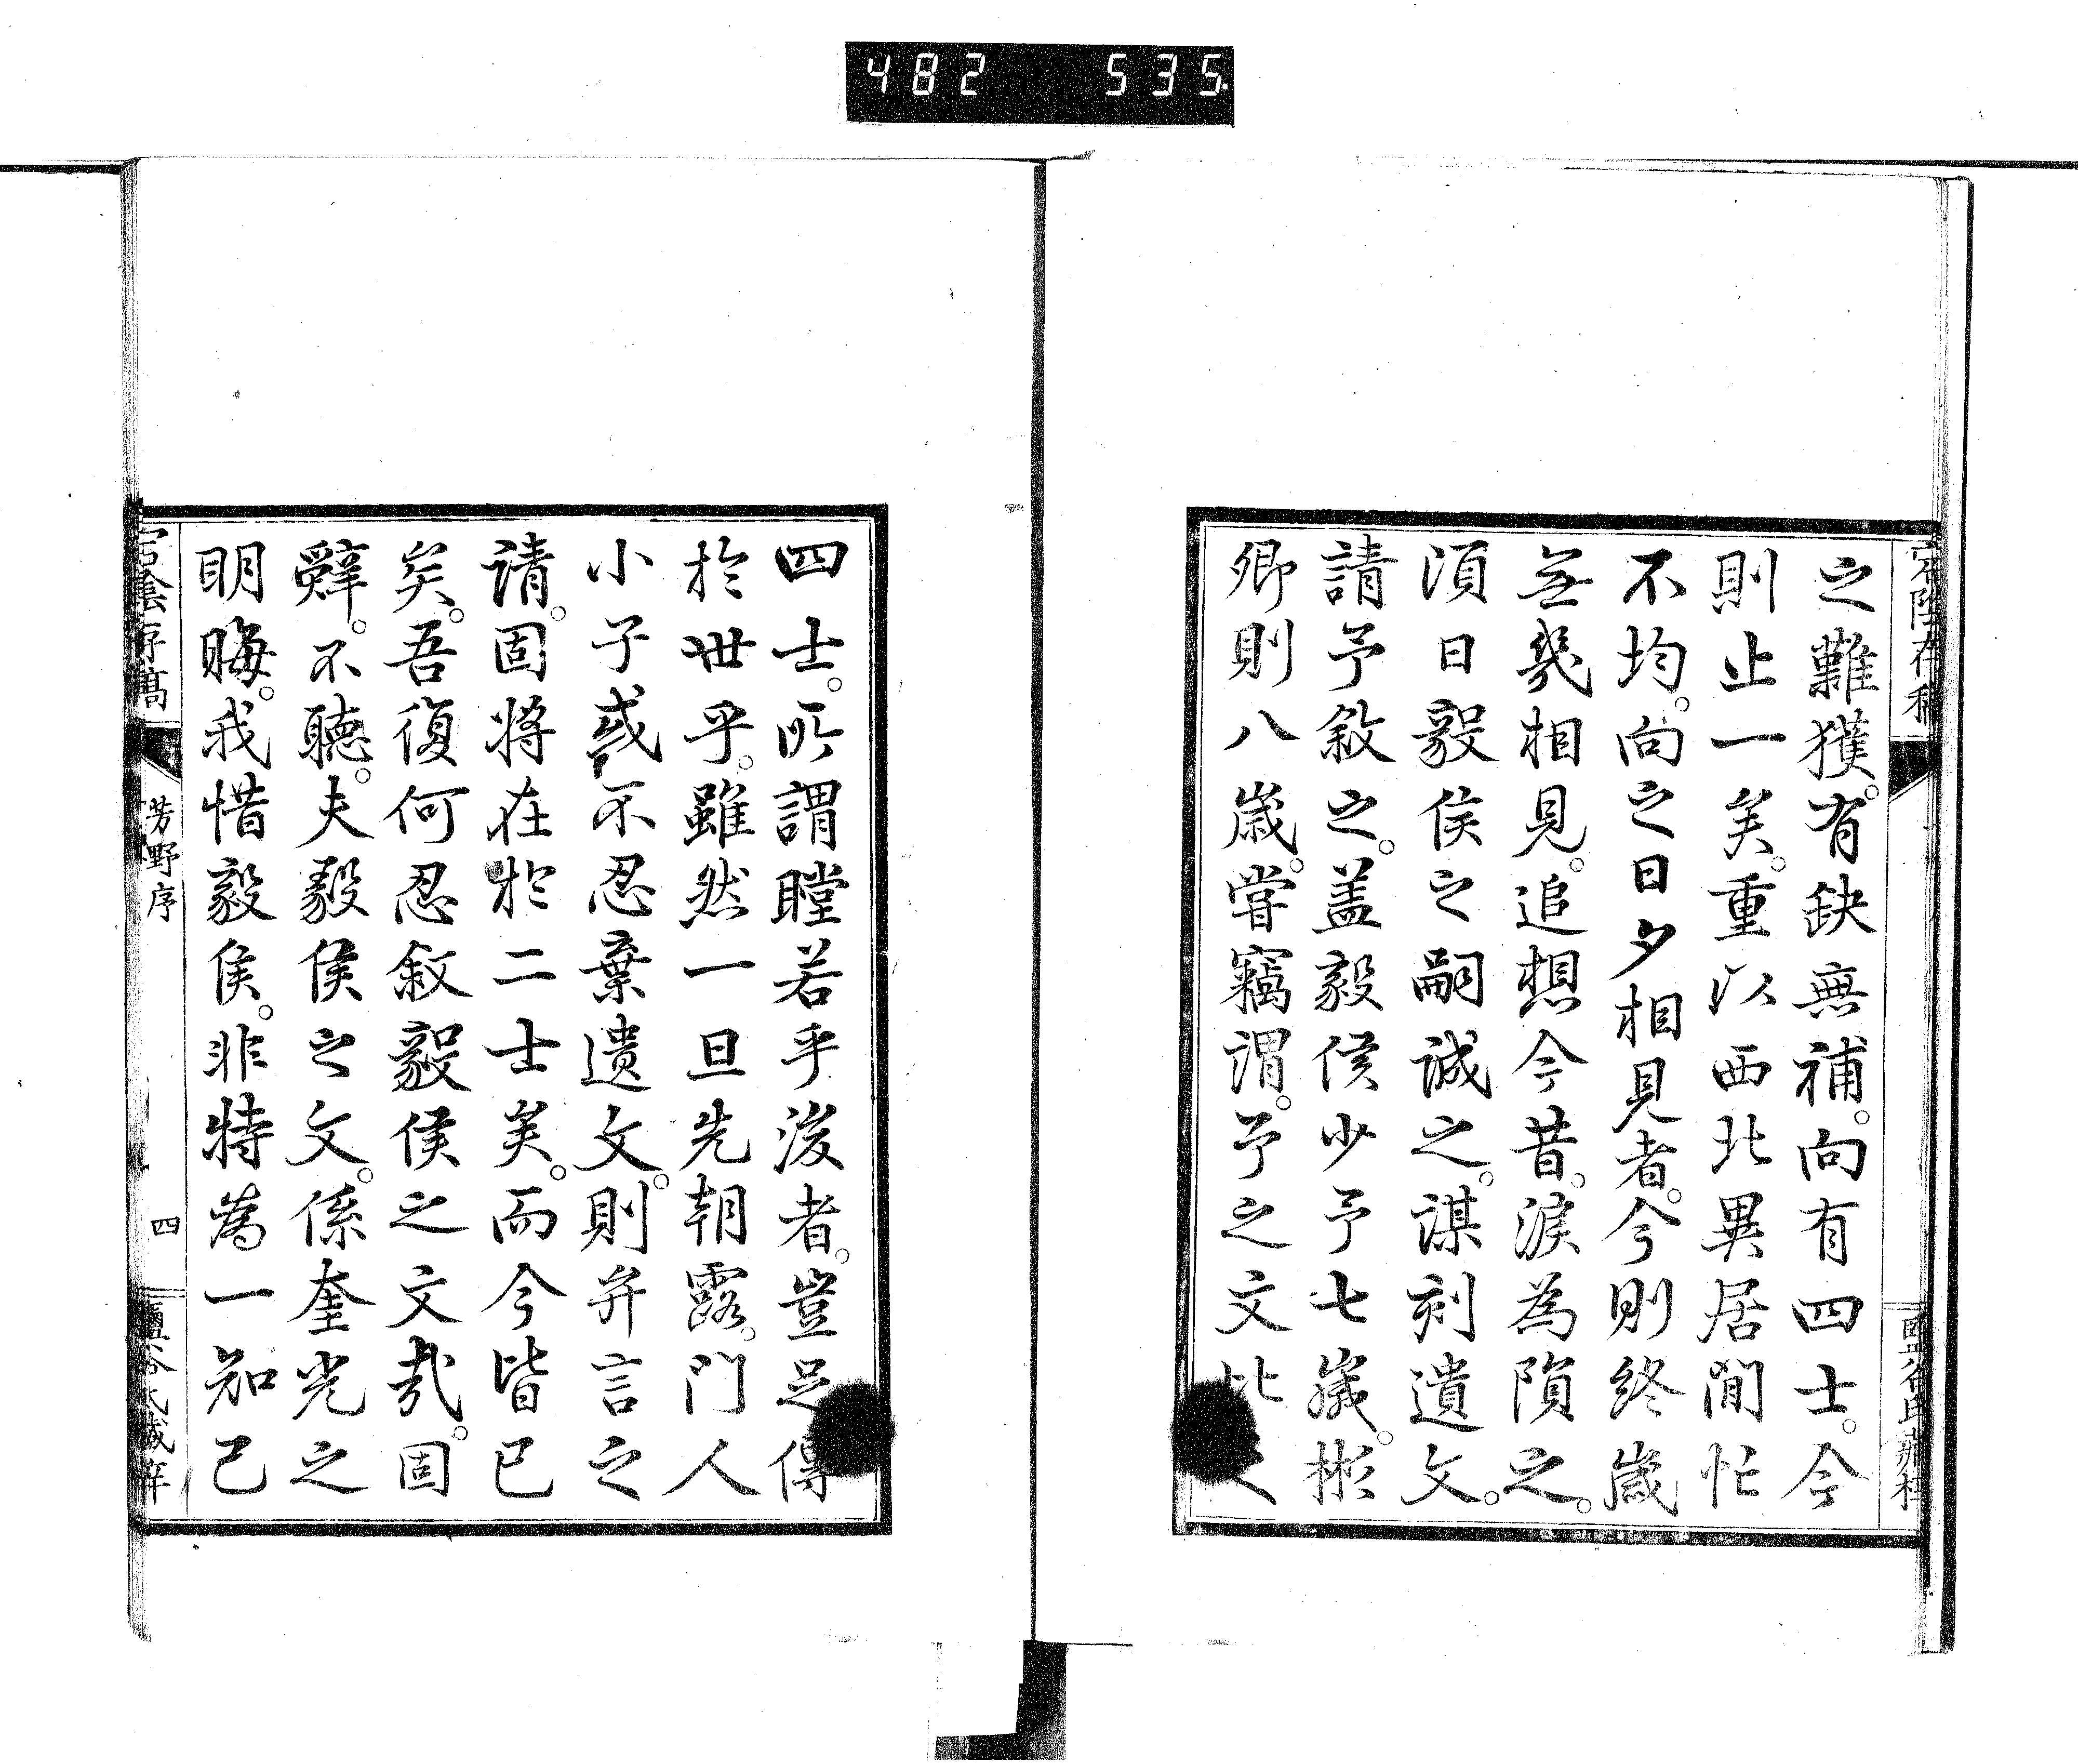 482 535
之難獲。有缺無補。向有四士。今
則止一矣。重以西北異居閒忙
不均。向之日夕相見者。今則終歲
無幾相見。追想今昔。淚為隕之。
須日毅侯之嗣誠之。謀刻遺文。
請予敘之。蓋毅侯少予七歲。彬
卿則八歲。嘗竊謂。予之文比
四士。所謂瞠若乎後者。豈足傳
於世乎。雖然一旦先朝露。門人
小子或不忍棄遺文。則弁言之
請。固將在於二士矣。而今皆已
矣。吾復何忍敘毅侯之文哉。固
辭。不聽。夫毅侯之文。係奎光之
明晦。我惜毅侯。非特為一知己
宕陰存稿
芳野序
四